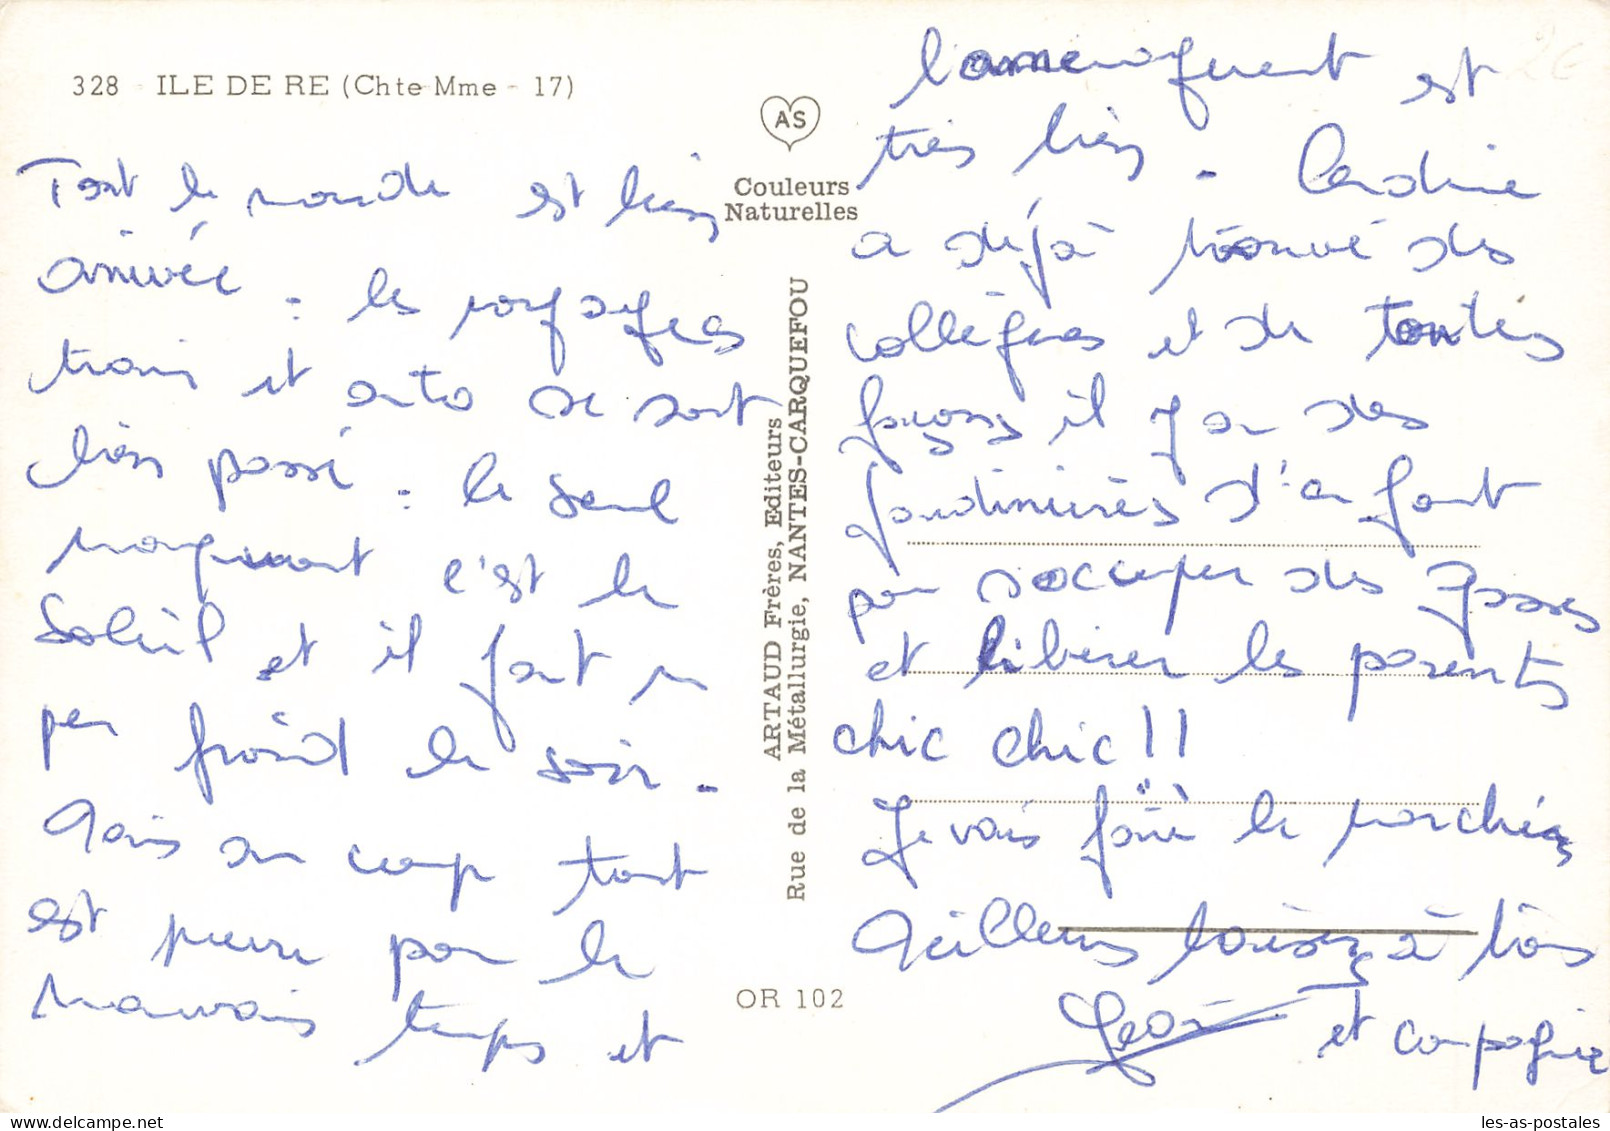 328 - ILE DE RE (Chte Mme - 17)
Tout le monde est bien
arrivée : les voyages
train et auto se sont
bien passé : le seul
manquant c'est le
Soleil et il fait un
peu froid le soir.
Mais du coup tout
est prévu pour le
mauvais temps et
AS
Couleurs
Naturelles
ARTAUD Frères, Editeurs
Rue de la Métallurgie, NANTES-CARQUEFOU
OR 102
l'aménagement est
très bien.
a déjà trouvé des
collègues et de toutes
façons il y a des
jardinières d'enfant
pour s'occuper des gosses
et libérer les parents
chic chic !!
Je vais faire le marché
Meilleurs baisers à tous
et compagnie
les-as-postales